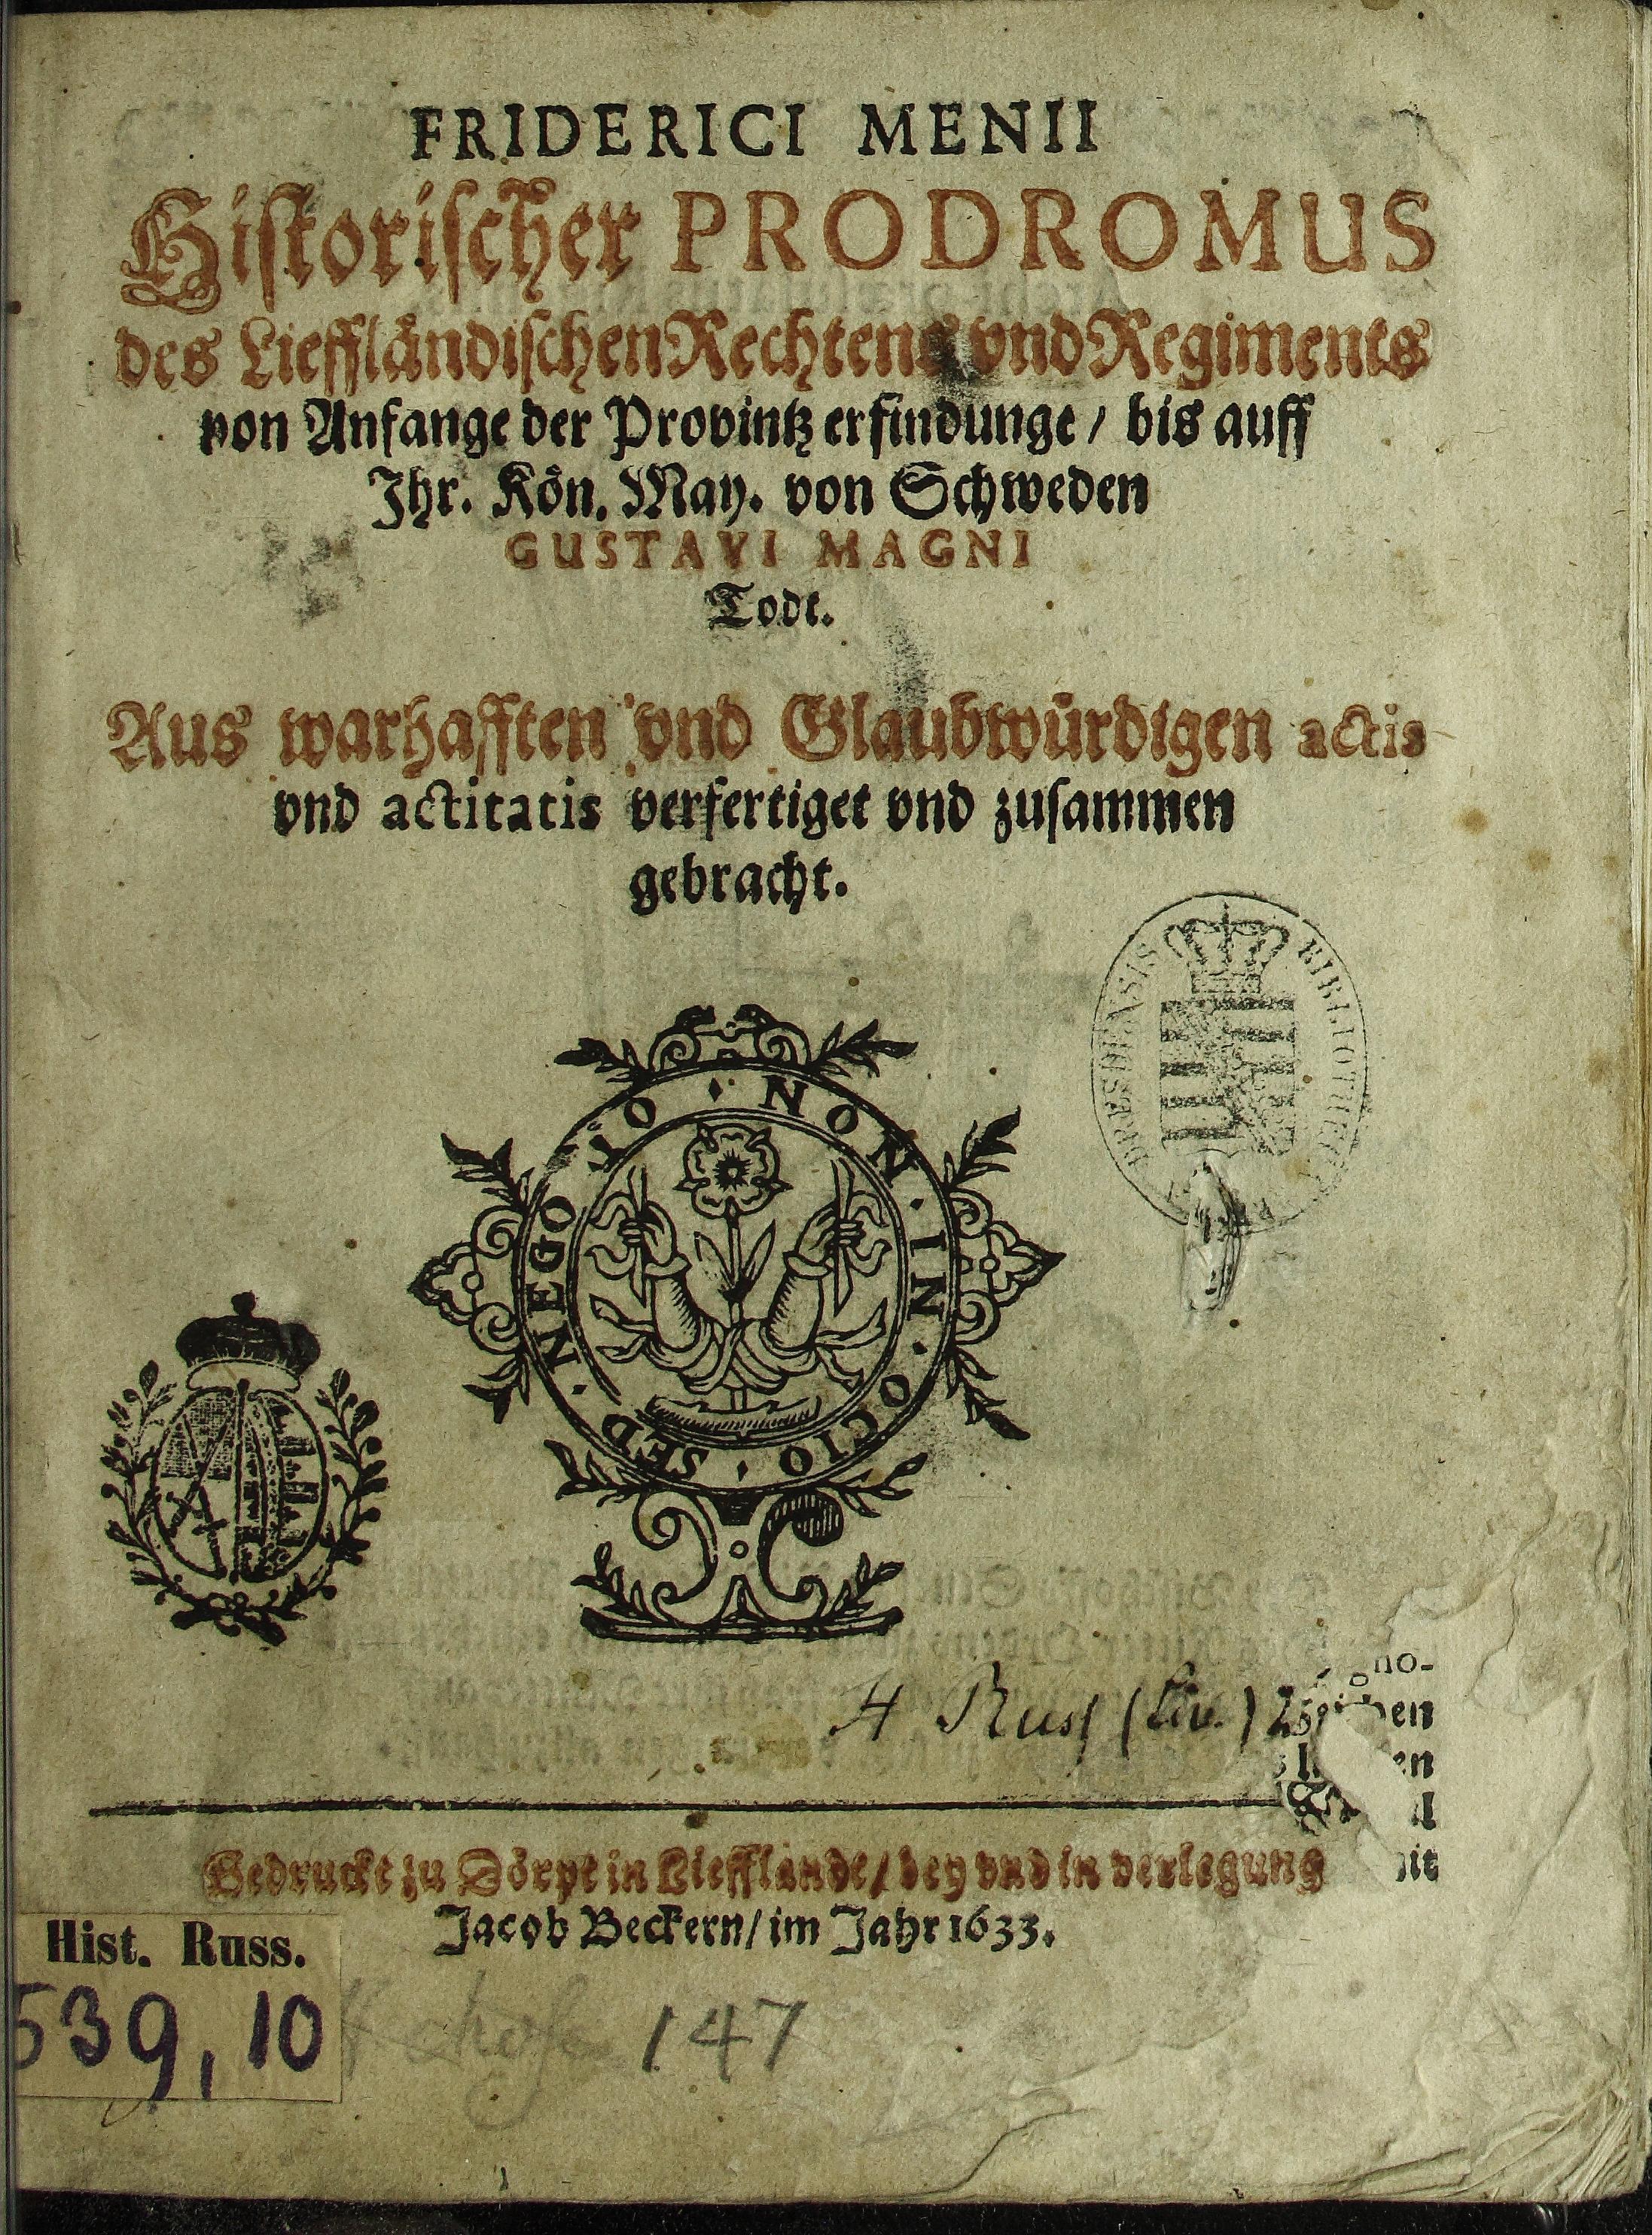 FRIDERICI MENII
Historischer PRODROMUS
des Liefflåndischen Rechtens vnd Regiments
von Anfange der Provintz erfindunge / bis auff
Ihr. Kön. May. von Schweden
GUSTAVI MAGNI
Todt.
Aus warhafften vnd Glaubwürdigen actis
vnd actitatis verfertiget vnd zusammen
gebracht.
BIBLIOTHECA
DRESDENSIS
NON · IN · OCIO · SED · NEGOTIO ·
H Russ (Liv.)
no-
en
en
Gedruckt zu Dörpt in Liefflande / bey vnd in verlegung
Jacob Beckern / im Jahr 1633.
Hist. Russ.
539, 10
147